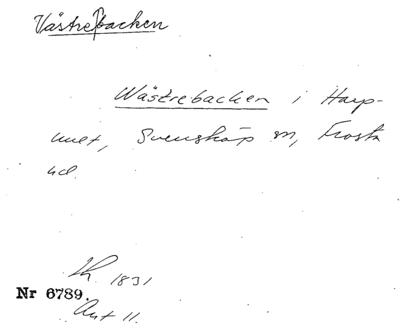 Västre backen
Wästrebacken i Harp-
mält, Svensköp sn, Frosta
hd.
1831
Nr 6789.
Akt 11.